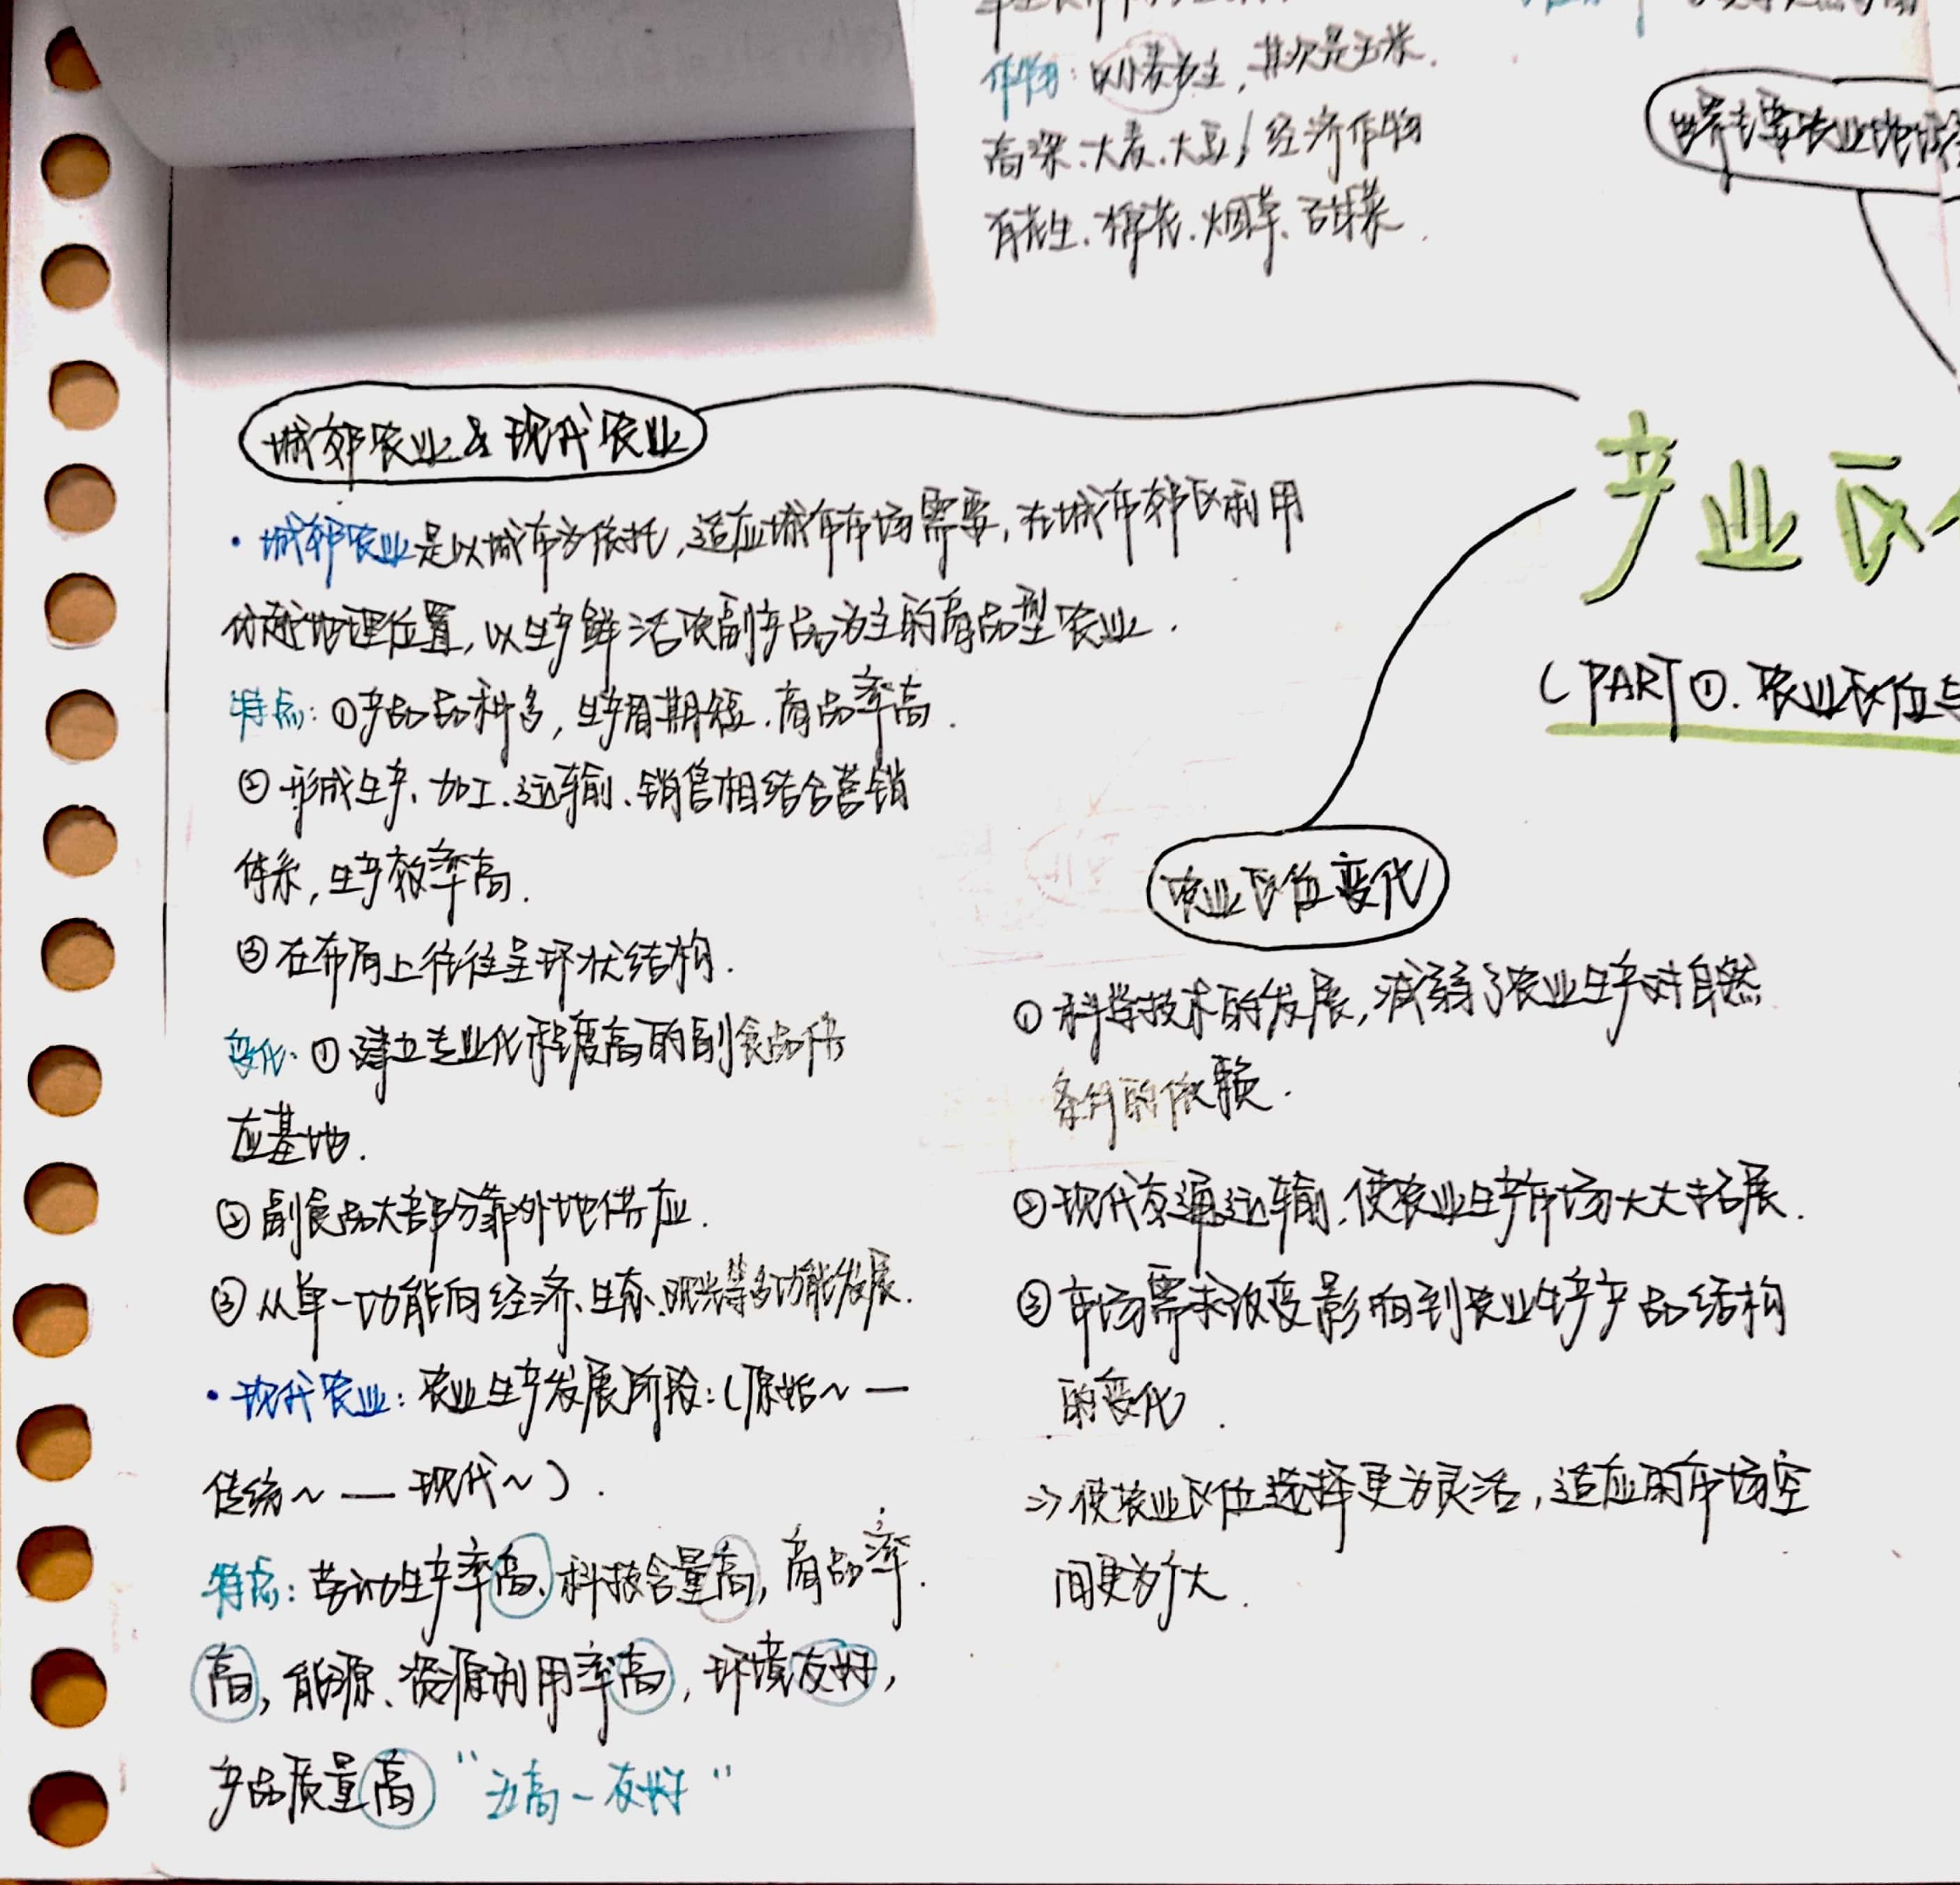 作物：以小麦为主，其次是玉米.
高粱.大麦.大豆/经济作物
有花生.棉花.烟草.甜菜.
世界主要农业地域
城郊农业&现代农业
产业区
·城郊农业是以城市为依托,适应城市市场需要,在城市郊区利用
优越地理位置,以生产鲜活农副产品为主的商品型农业.
(PART①.农业区位与
特点:①产品品种多,生产周期短.商品率高.
②形成生产、加工.运输、销售相结合营销
体系,生产效率高.
③在布局上往往呈环状结构.
变化:①建立专业化程度高的副食品供
应基地.
②副食品大部分靠外地供应.
③从单一功能向经济、生态、观光等多功能发展.
·现代农业:农业生产发展阶段:(原始~—
传统~—现代~).
特点:劳动生产率高、科技含量高,商品率
高,能源、资源利用率高,环境友好,
产品质量高 "五高一友好"
农业区位变化
①科学技术的发展,减弱了农业生产对自然
条件的依赖.
②现代交通运输,使农业生产市场大大拓展.
③市场需求改变影响到农业生产产品结构
的变化.
⇒使农业区位选择更为灵活,适应的市场空
间更为扩大.